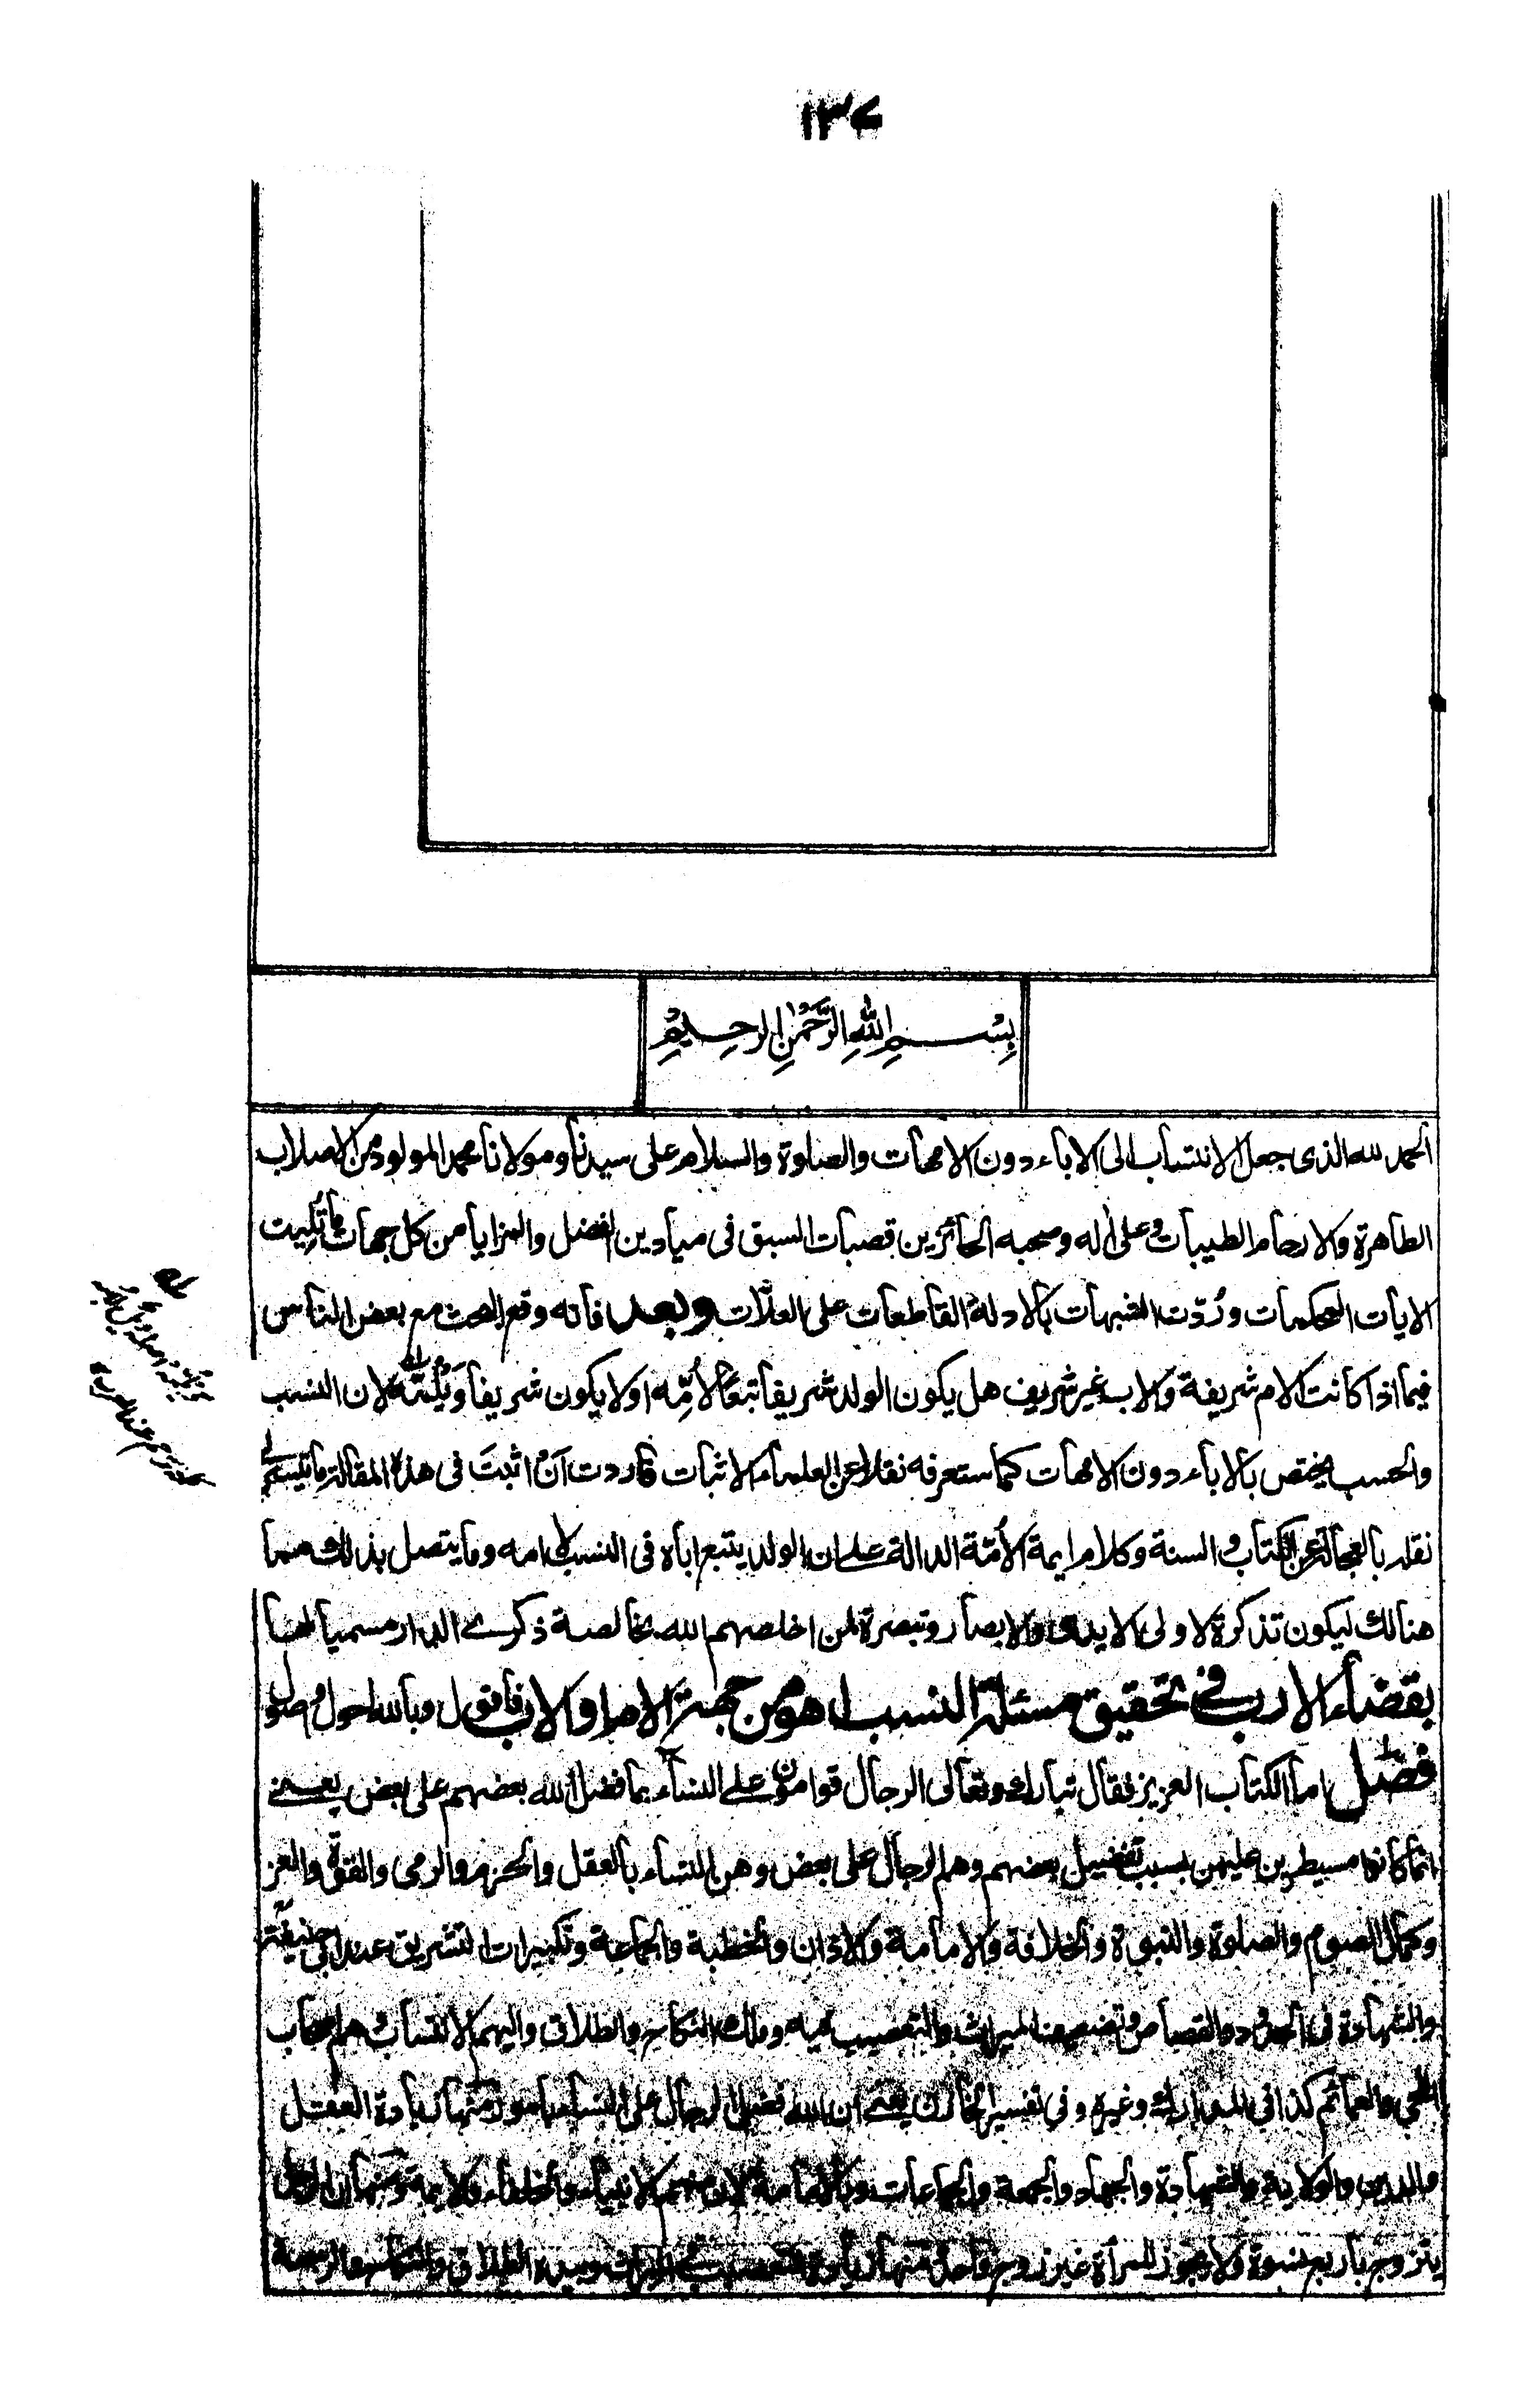 ١٣٤
بِسْمِ اللهِ الرَّحْمٰنِ الرحِيْمِ
الحمد لله الذى جعل الانتساب الى الاباء دون الامهات والصلوة والسلام على سيدنا ومولانا محمد المولود من الاصلاب
الطاهرة والارحام الطيبات وعلى اٰله وصحبه الحائزين قصبات السبق فى ميادين الفضل والمزايا من كل جهات ما تُليت
الايات المحكمات ورُدّت الشبهات بالادلة القاطعات على العلّات وبعد فانه وقع البحث مع بعض الناس
فيما اذا كانت الام شريفة والاب غير شريف هل يكون الولد شريفا تبعًا لاُمّه او لا يكون شريفا لان النسب
والحسب يختص بالاباء دون الامهات كما ستعرفه نقلا عن العلماء الاثبات فاردت اَنْ اثبتَ فى هذه المقالة ما تيسر لى
نقله بالعجالة عن الكتاب والسنة وكلام ايمة الاُمّة الدالة على ان الولد يتبع اباه فى النسب لا امه وما يتصل بذلك
هنالك ليكون تذكرة لاولى الايدى والابصار وتبصرة لمن اخلصهم الله بخالصة ذكرى الدار مسميا لها
بقضاء الارب فى تحقيق مسئلة النسب اهو من جهة الام او الاب فاقول وبالله احول واصول
فصل اما الكتاب العزيز فقال تبارك وتعالى الرجال قوامون على النساء بما فضل الله بعضهم على بعض يعنى
انما كانوا مسيطرين عليهن بسبب تفضيل بعضهم وهم الرجال على بعض وهن النساء بالعقل والحزم والرمى والقوة والعز
وكمال الصوم والصلوة والنبوة والخلافة والامامة والاذان والخطبة والجماعة وتكبيرات التشريق عند ابى حنيفة
والشهادة فى الحدود والقصاص وتضعيف الميراث والتعصيب فيه وملك النكاح والطلاق واليهم الانتساب وهم اصحاب
اللحى والعمائم كذا فى المدارك وغيره وفى تفسير الخازن يعنى ان الله فضل الرجال على النساء بامور منها زيادة العقل
والدين والولاية والشهادة والجهاد والجمعة والجماعات وبالامامة لان منهم الانبياء والخلفاء والايمة ومنها ان الرجل
يتزوج باربع نسوة ولا يجوز للمرأة غير زوج واحد ومنها زيادة التعصيب فى الميراث وبيده الطلاق